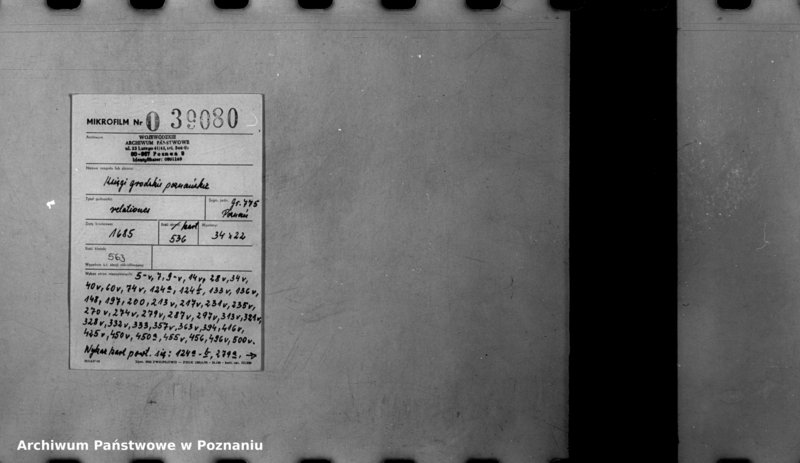 MIKROFILM Nr 0 39080
WOJEWÓDZKIE
ARCHIWUM PAŃSTWOWE
60-967 Poznań 9
Księgi grodzkie poznańskie
relationes
Gr. 775
Poznań
1685
kart
536
34 x 22
563
5-v, 7, 9-v, 14v, 28v, 34v,
40v, 60v, 74v, 124a, 124b, 133v, 136v,
148, 197, 200, 213v, 217v, 231v, 235v,
270v, 274v, 279v, 287v, 297v, 313v, 321v,
328v, 332v, 333, 357v, 363v, 394, 416v,
425v, 450v, 450a, 455v, 456, 496v, 500v.
Wykaz kart powt. się: 124a-b, 279a, →
Archiwum Państwowe w Poznaniu